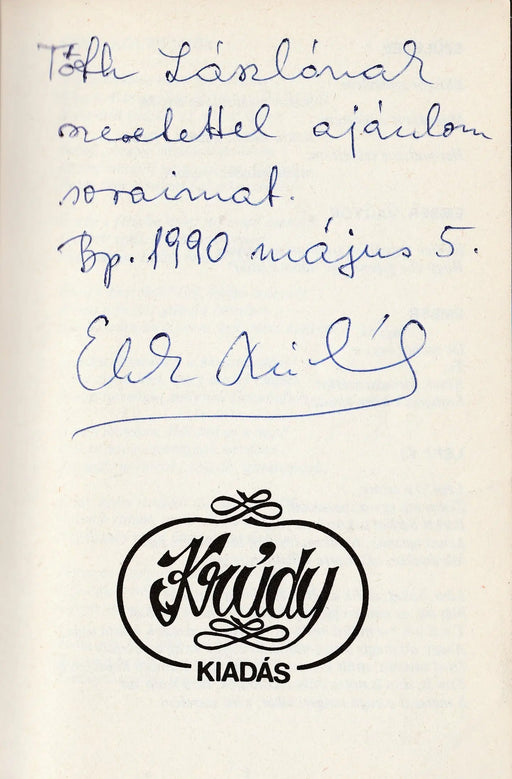 Tóth Lászlónak
szeretettel ajánlom
soraimat.
Bp. 1990 május 5.
Krúdy
KIADÁS